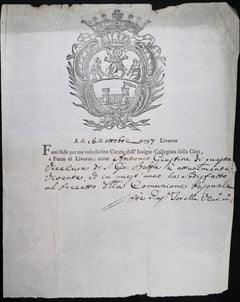 A dì 16 di ottobre 1797 Livorno
Farsi fede per me infrascritto Curato dell'Insigne Collegiata della Città,
e Porto di Livorno, come Antonio Giustini di questa
vice Cura di S. Gio. Batta è attualmente
vivente, ed in quest'anno ha sodisfatto
al Precetto della Comunione Pasquale
Torelli